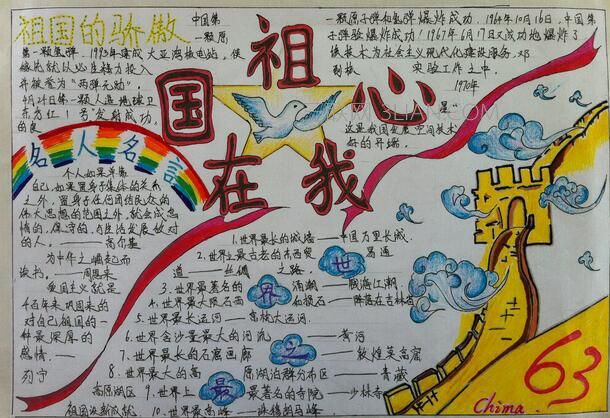 祖国的骄傲
中国第
一颗原
一颗原子弹和氢弹爆炸成功。1964年10月16日,中国第
子弹验爆炸成功!1967年6月17日又成功地爆炸了
该技术为社会主义现代化建设服务,邓
实验工作之中。
1970年
星"
这里我国发展"空间技术"
好的开端。
第一颗氢弹 1993年建成大亚湾核电站,侯
并被誉为"两弹元勋"。
4月24日第一颗人造地球卫
东方红1号"发射成功。
的良
祖国在我心
名人名言
个人如果单靠
自己,如果置身于集体的关系
之外,置身于任何团结民众的
伟大思想的范围之外,就会成怠
惰的、保守的、与生活发展敌对
的人。——高尔基
为中华之崛起而
读书。——周恩来
爱国主义就是
千百年来巩固来的
对自己祖国的一
种最深厚的
感情。——
列宁
世界之最
1.世界最长的城墙——中国万里长城。
2.世界上最古老的东西贸易通
道——丝绸之路。
3.世界最著名的涌潮——钱海江潮。
4.世界最大陨石雨——陨落在吉林省
5.世界最长运河——京杭大运河。
6.世界含沙量最大的河流——黄河
7.世界最长的石窟画廊——敦煌莫高窟
8.世界最大的高原湖泊群分布区——青藏
高原湖区
9.世界上最著名的寺院——少林寺
10.世界最高峰——珠穆朗玛峰
祖国发新成就
63
China